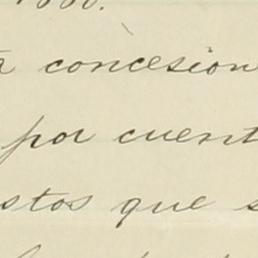 concesion
por cuent
stos que s